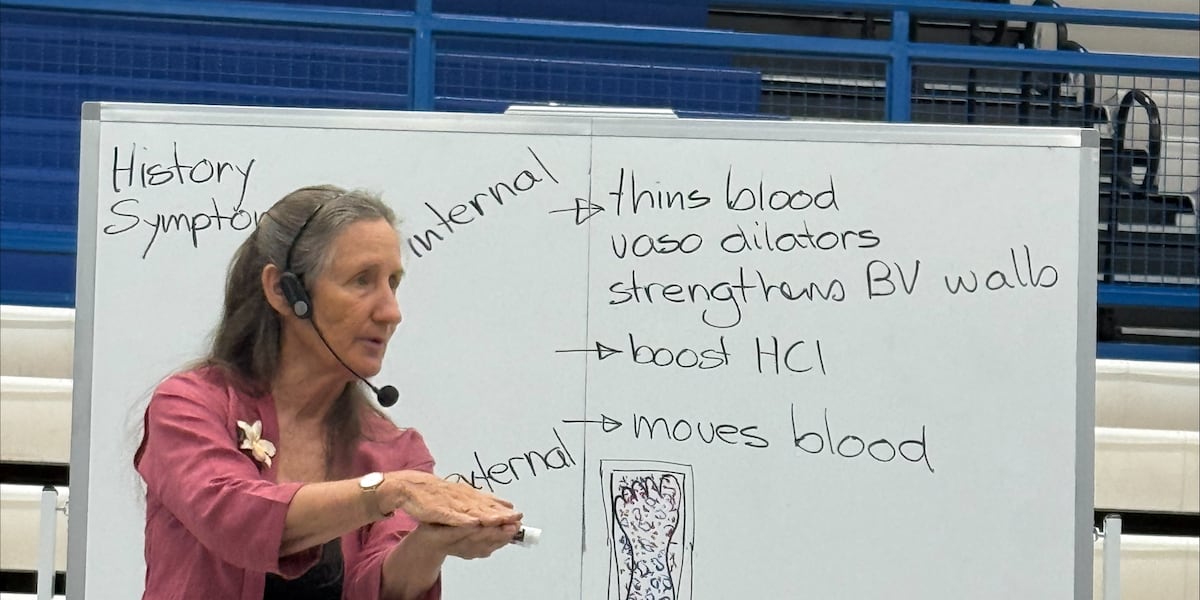 History
Sympto
internal
thins blood
vaso dilators
strengthens BV walls
boost HCl
external
moves blood